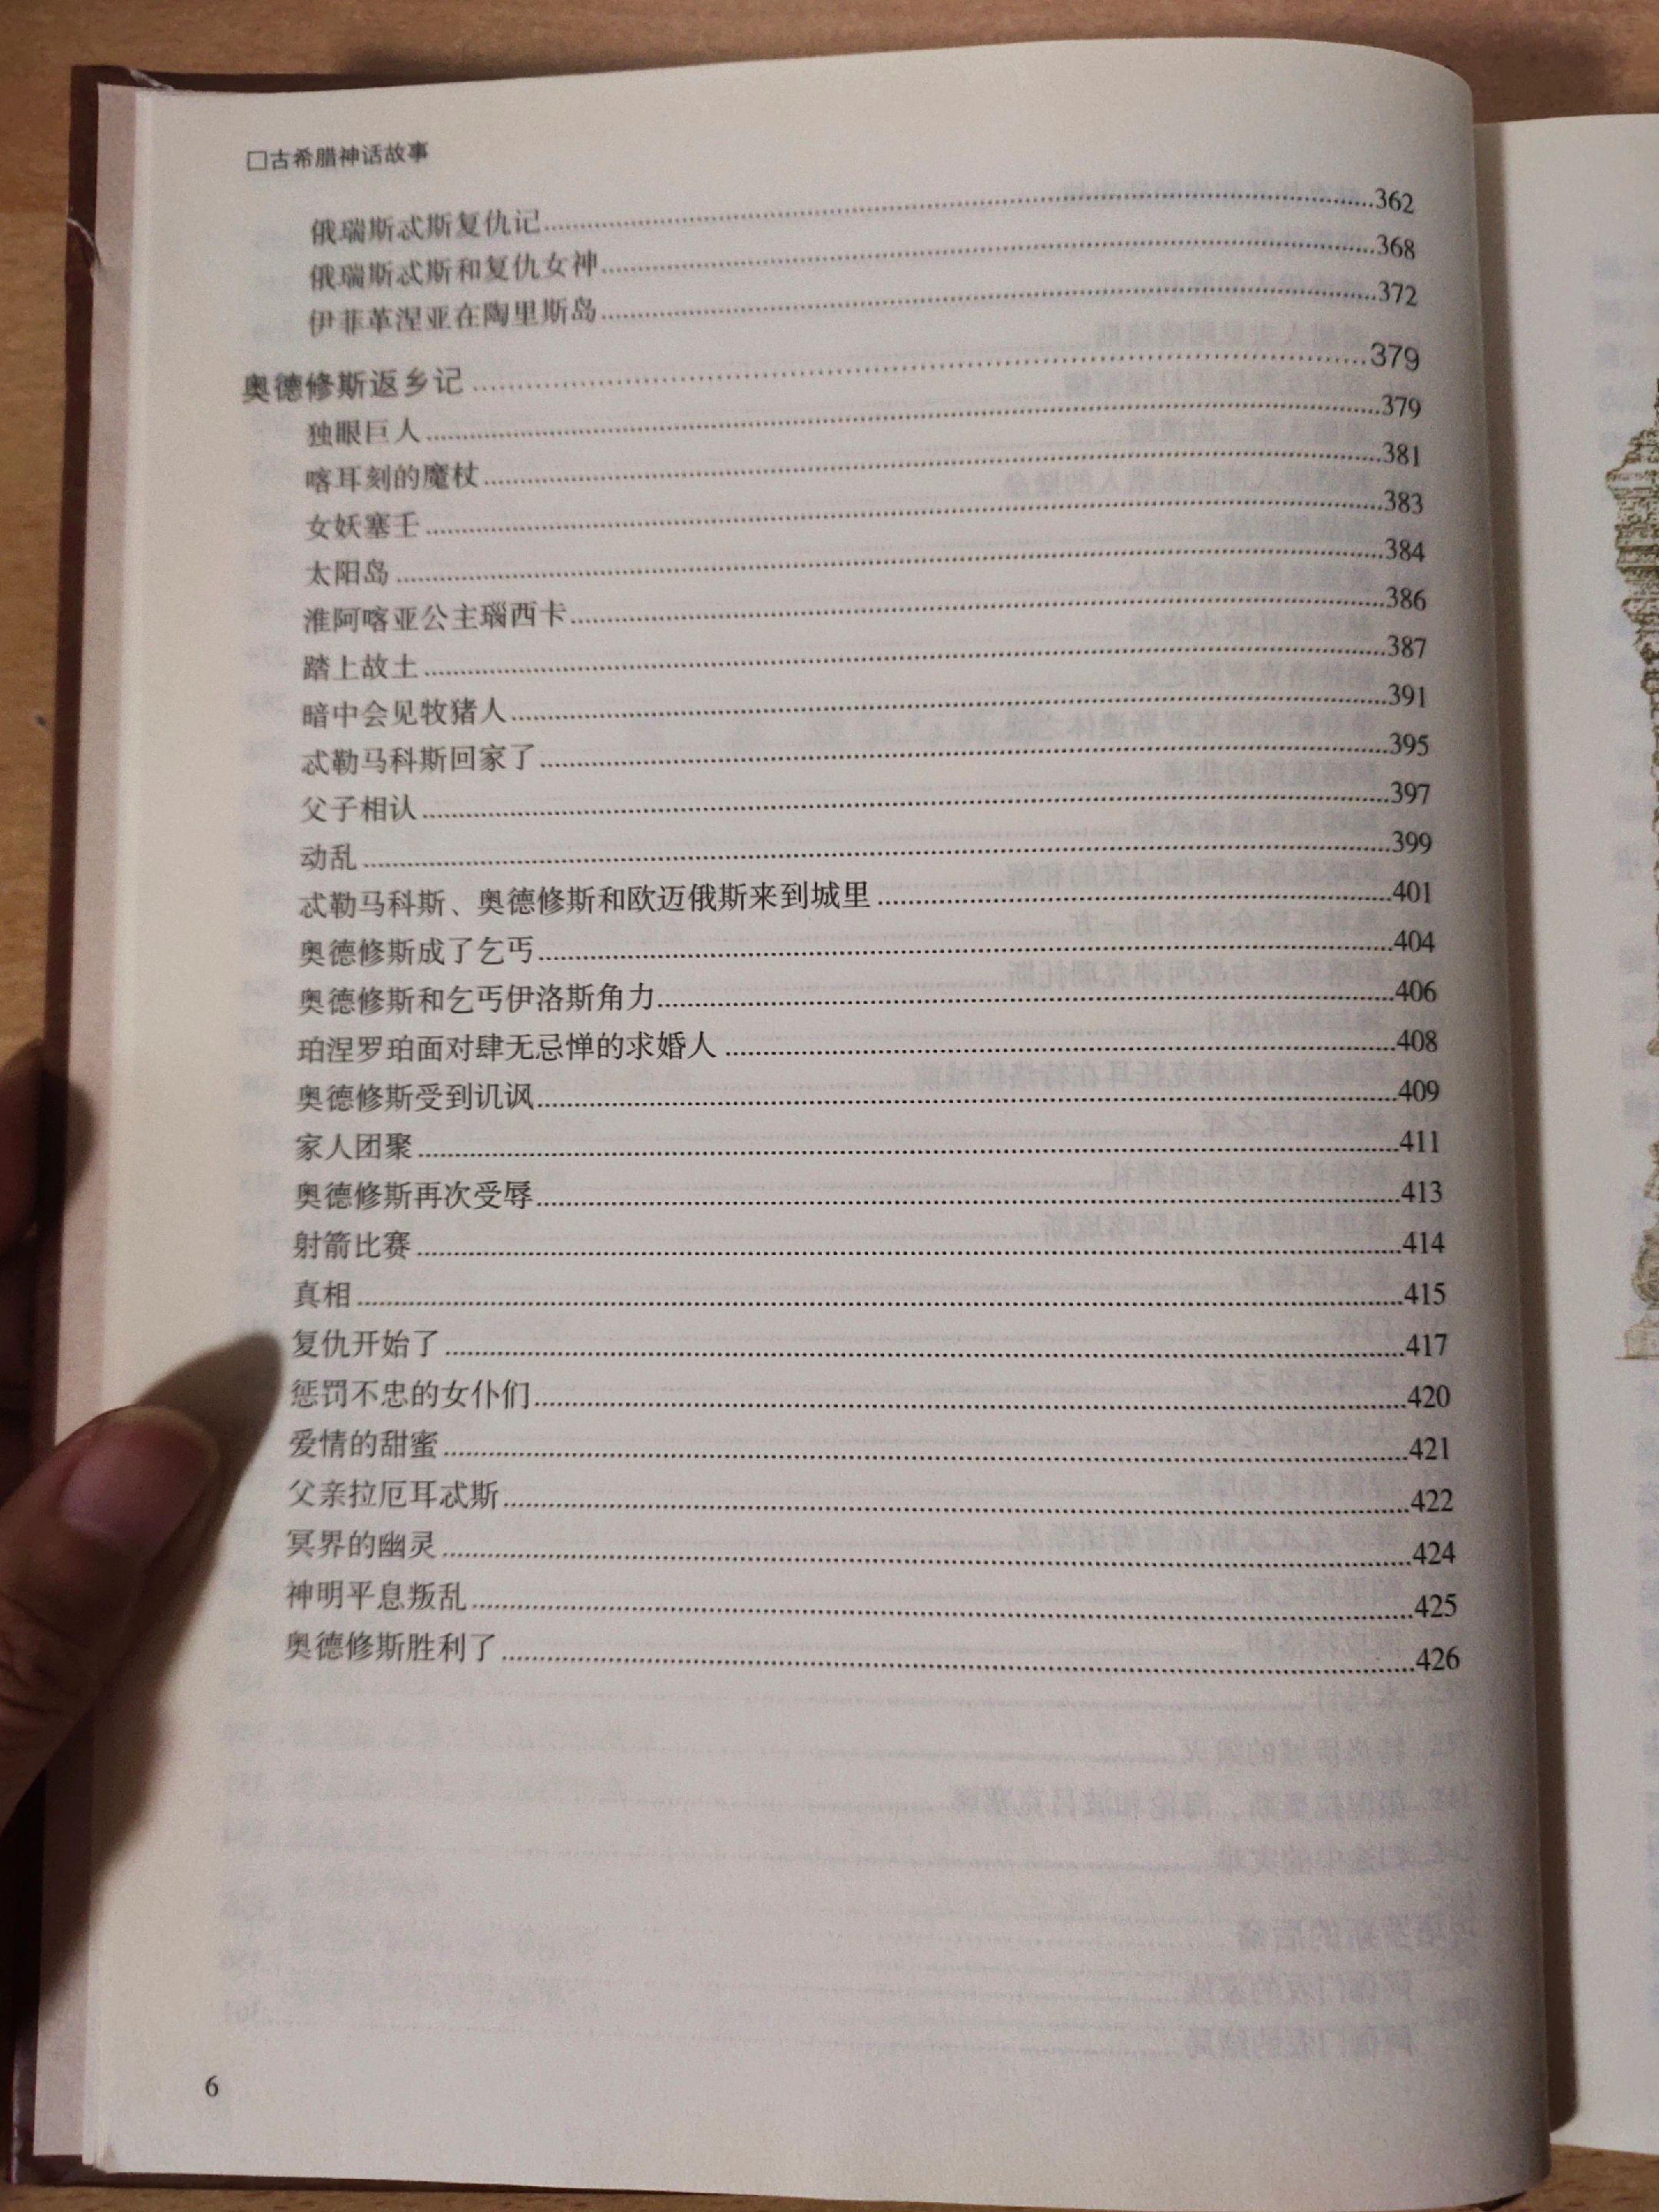 □古希腊神话故事
俄瑞斯忒斯复仇记……362
俄瑞斯忒斯和复仇女神……368
伊菲革涅亚在陶里斯岛……372
奥德修斯返乡记……379
独眼巨人……379
喀耳刻的魔杖……381
女妖塞壬……383
太阳岛……384
淮阿喀亚公主瑙西卡……386
踏上故土……387
暗中会见牧猪人……391
忒勒马科斯回家了……395
父子相认……397
动乱……399
忒勒马科斯、奥德修斯和欧迈俄斯来到城里……401
奥德修斯成了乞丐……404
奥德修斯和乞丐伊洛斯角力……406
珀涅罗珀面对肆无忌惮的求婚人……408
奥德修斯受到讥讽……409
家人团聚……411
奥德修斯再次受辱……413
射箭比赛……414
真相……415
复仇开始了……417
惩罚不忠的女仆们……420
爱情的甜蜜……421
父亲拉厄耳忒斯……422
冥界的幽灵……424
神明平息叛乱……425
奥德修斯胜利了……426
6